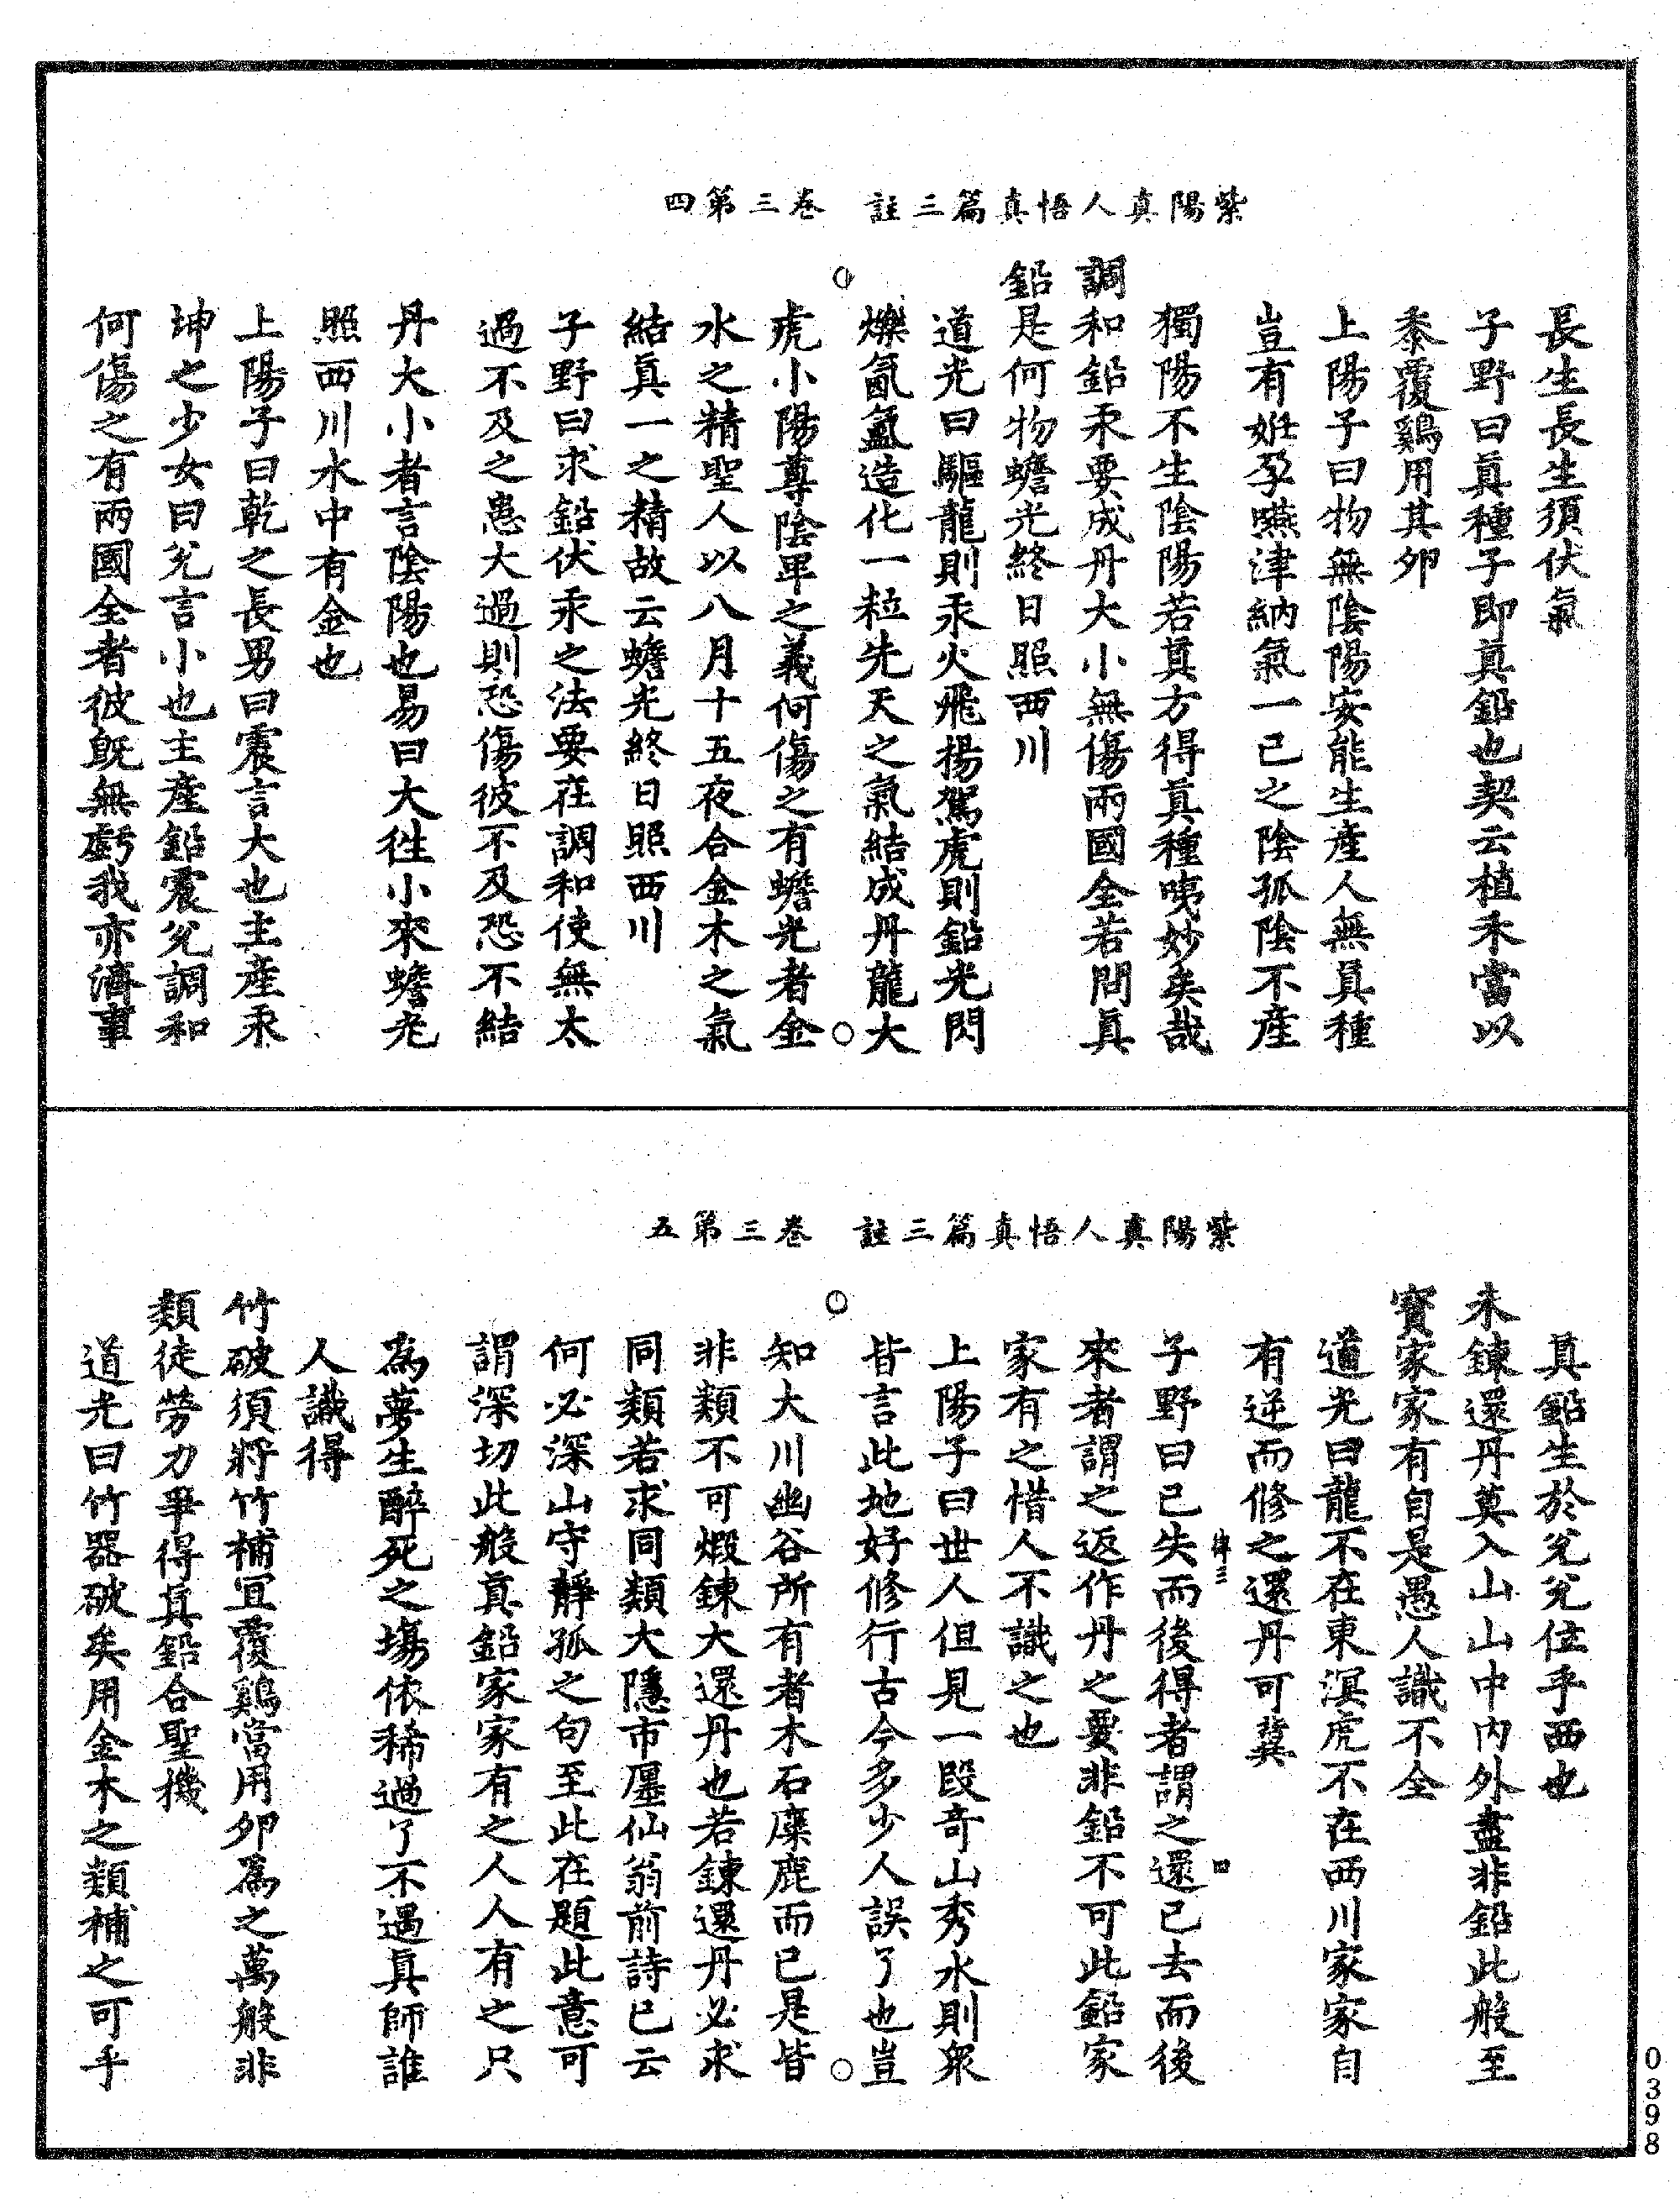 紫陽真人悟真篇三註　卷三第四
長生長生須伏氣
子野曰眞種子即眞鉛也契云植禾當以
黍覆鷄用其卵
上陽子曰物無陰陽安能生產人無眞種
豈有姙孕嚥津納氣一己之陰孤陰不產
獨陽不生陰陽若眞方得眞種咦妙矣哉
調和鉛汞要成丹大小無傷兩國全若問眞
鉛是何物蟾光終日照西川
道光曰驅龍則汞火飛揚駕虎則鉛光閃
爍氤氳造化一粒先天之氣結成丹龍大
虎小陽尊陰卑之義何傷之有蟾光者金
水之精聖人以八月十五夜合金木之氣
結眞一之精故云蟾光終日照西川
子野曰求鉛伏汞之法要在調和使無太
過不及之患大過則恐傷彼不及恐不結
丹大小者言陰陽也易曰大徃小來蟾光
照西川水中有金也
上陽子曰乾之長男曰震言大也主產汞
坤之少女曰兊言小也主產鉛震兊調和
何傷之有兩國全者彼旣無虧我亦濟事
紫陽真人悟真篇三註　卷三第五
眞鉛生於兊兊位乎西也
未鍊還丹莫入山山中內外盡非鉛此般至
寳家家有自是愚人識不全
道光曰龍不在東溟虎不在西川家家自
有逆而修之還丹可冀
律三　四
子野曰已失而後得者謂之還已去而後
來者謂之返作丹之要非鉛不可此鉛家
家有之惜人不識之也
上陽子曰世人但見一段奇山秀水則衆
皆言此地好修行古今多少人誤了也豈
知大川幽谷所有者木石麋鹿而已是皆
非類不可煅鍊大還丹也若鍊還丹必求
同類若求同類大隱市廛仙翁前詩已云
何必深山守靜孤之句至此在題此意可
謂深切此般眞鉛家家有之人人有之只
為夢生醉死之塲依稀過了不遇眞師誰
人識得
竹破須將竹補宜覆鷄當用卵爲之萬般非
類徒勞力爭得眞鉛合聖機
道光曰竹器破矣用金木之類補之可乎
0398